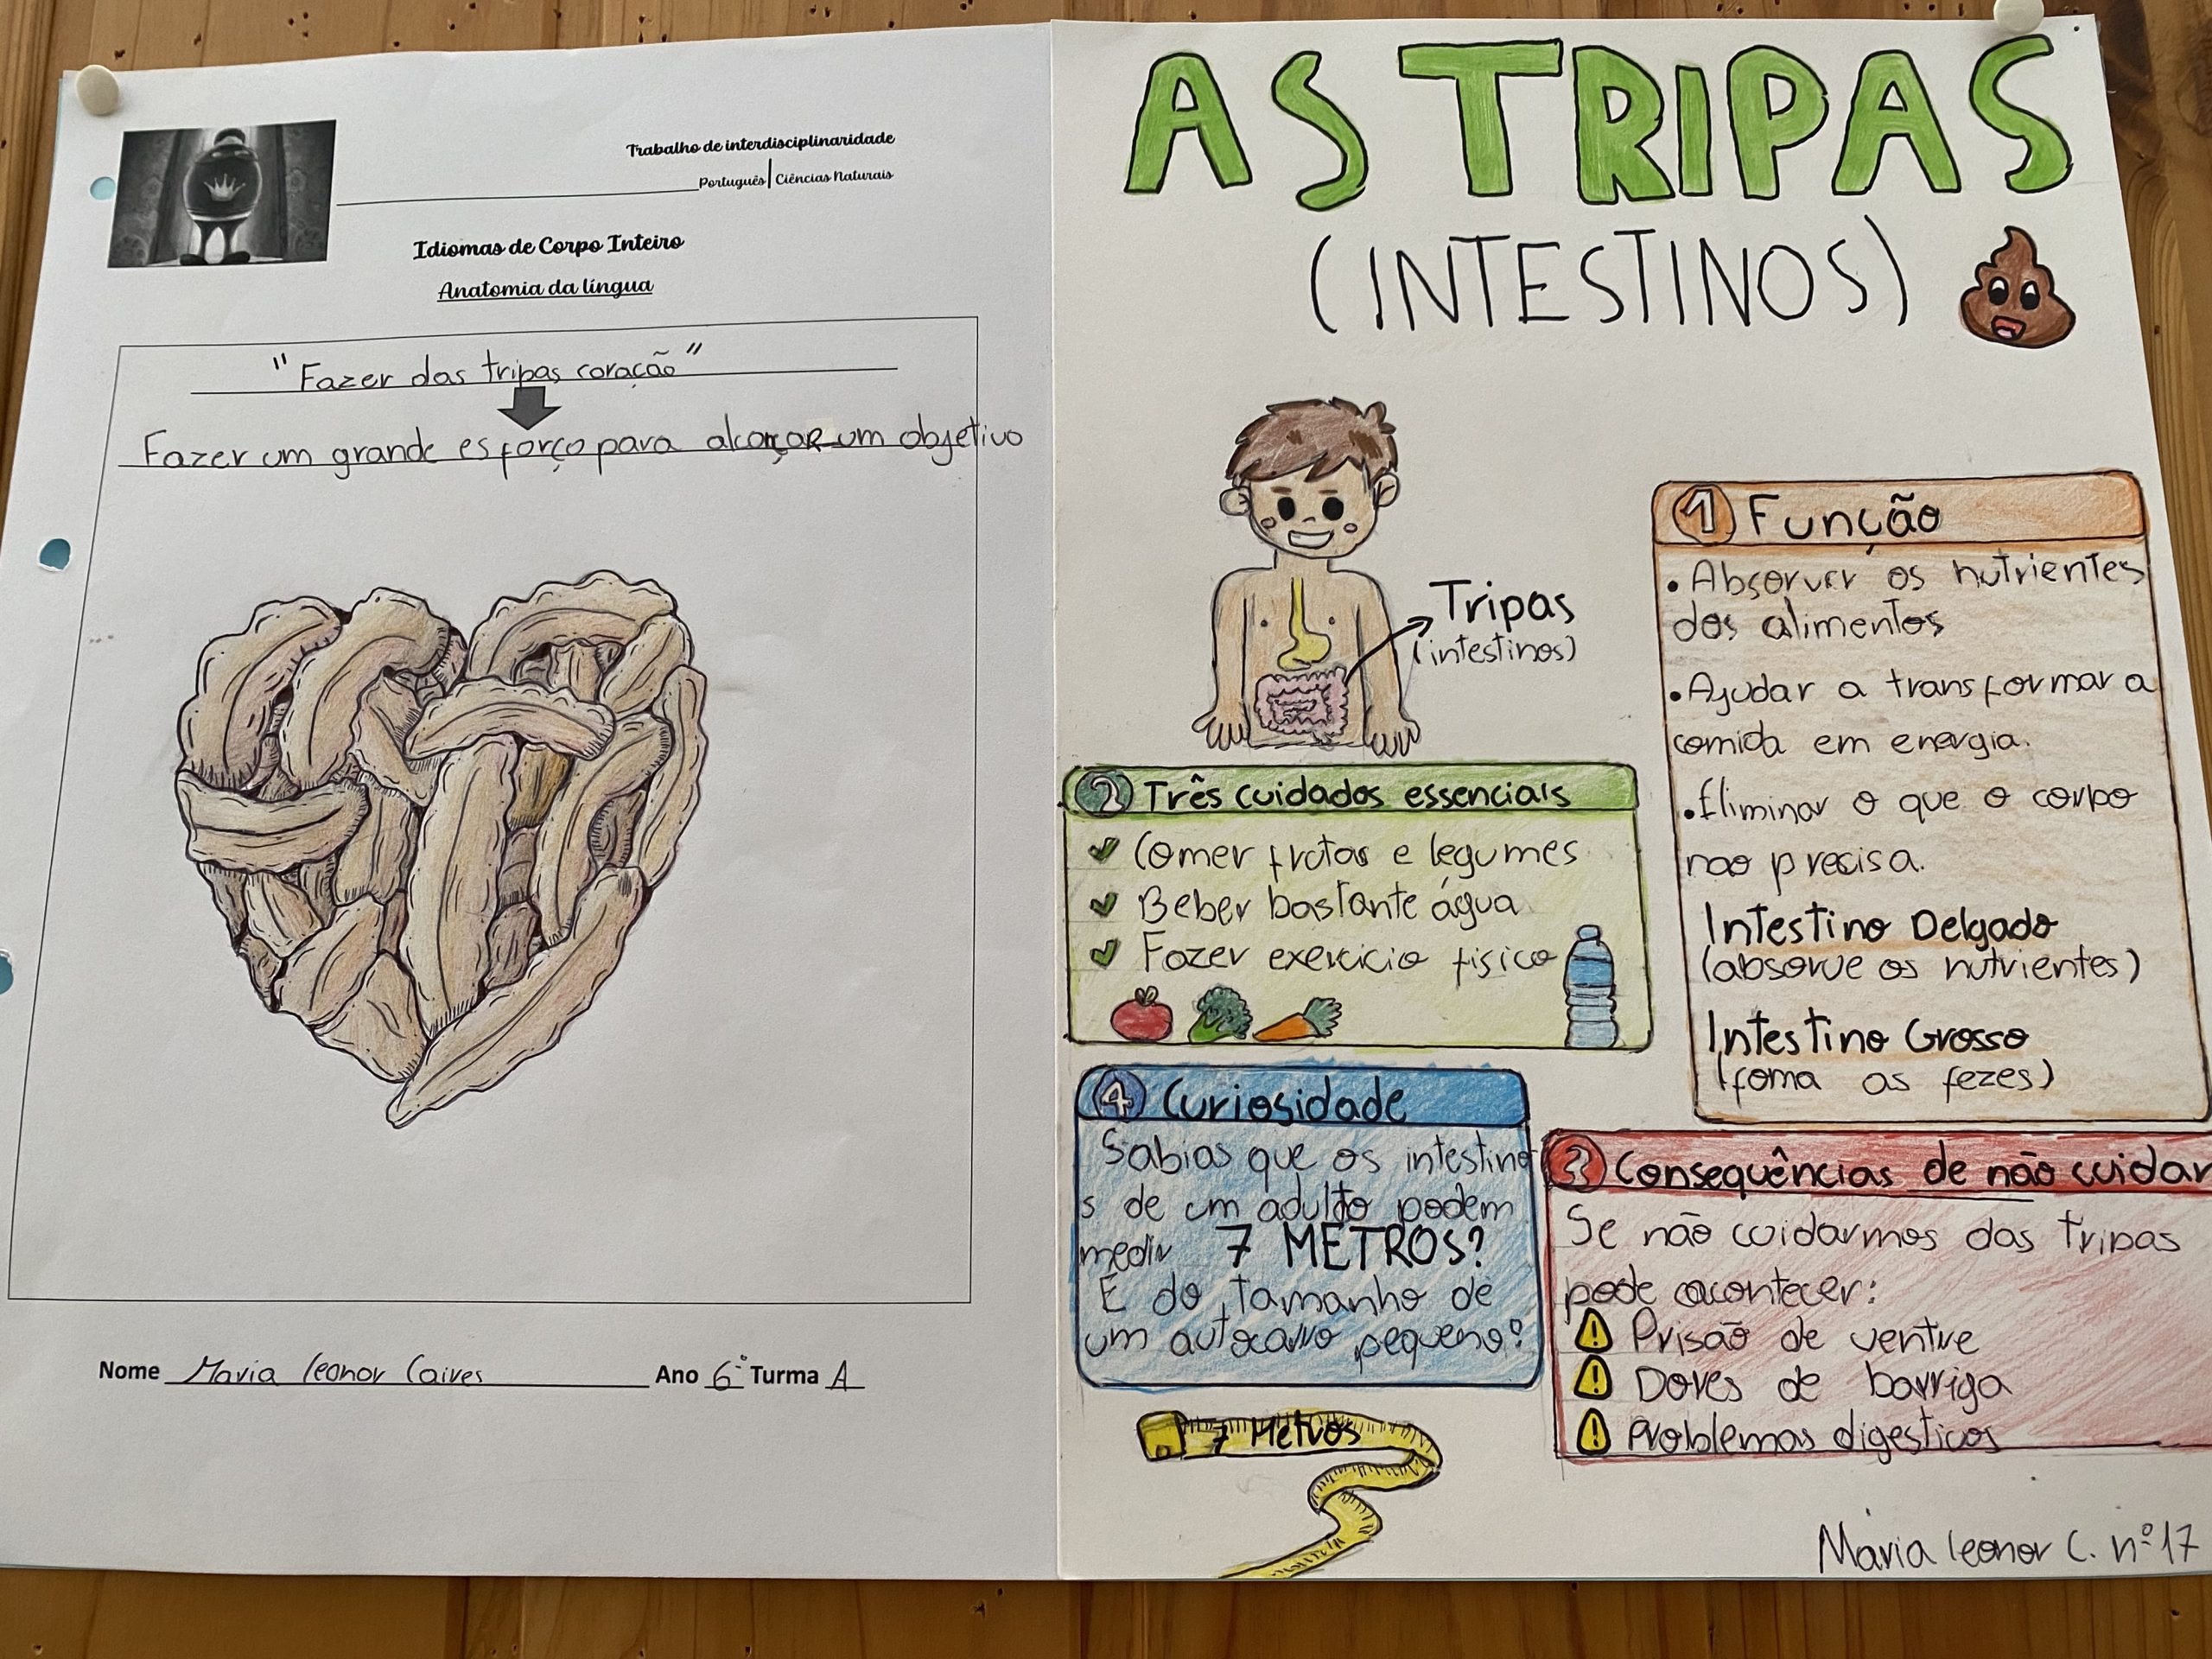 Trabalho de interdisciplinaridade
Português | Ciências Naturais
Idiomas de Corpo Inteiro
Anatomia da língua
"Fazer das tripas coração"
Fazer um grande esforço para alcançar um objetivo
Nome Maria leonor Caires Ano 6º Turma A
AS TRIPAS
(INTESTINOS)
Tripas
(intestinos)
1 Função
• Absorver os nutrientes
dos alimentos
• Ajudar a transformar a
comida em energia.
• Eliminar o que o corpo
nao precisa.
Intestino Delgado
(absorve os nutrientes)
Intestino Grosso
(foma as fezes)
2 Três cuidados essenciais
✓ Comer frutas e legumes
✓ Beber bastante água
✓ Fazer exercicio fisico
4 Curiosidade
Sabias que os intestino
s de um adulto podem
medir 7 METROS?
E do tamanho de
um autocarro pequeno?
7 Metros
3 Consequências de não cuidar
Se não cuidarmos das tripas
pode acontecer:
Prisão de ventre
Dores de barriga
Problemas digestivos
Maria leonor C. nº17